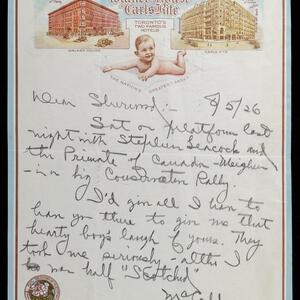 Walker House
Carls-Rite
TORONTO'S
TWO FAMOUS
HOTELS
WALKER HOUSE
CARLS-RITE
THE NATION'S GREATEST ASSET
Dear Sherwood:- 8/5/26
Sat on platform last
night with Stephen Leacock and
the Primate of Canada - Meighen
- in big Conservative Rally.
I'd give all I have to
have you there to give me that
hearty boy's laugh of yours. They
took me seriously - altho I
was half "Scotched"